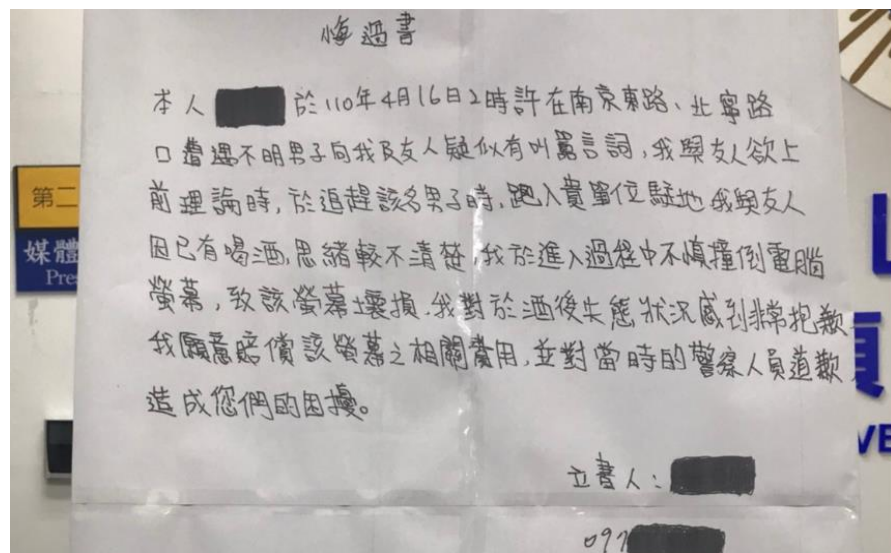 悔過書
本人 於110年4月16日2時許在南京東路、北寧路
口遭遇不明男子向我及友人疑似有叫罵言詞,我與友人欲上
前理論時,於追趕該名男子時,跑入貴單位駐地我與友人
因已有喝酒,思緒較不清楚,我於進入過程中不慎撞倒電腦
螢幕,致該螢幕壞損.我對於酒後失態狀況感到非常抱歉
我願意賠償該螢幕之相關費用,並對當時的警察人員道歉,
造成您們的困擾。
立書人:
097
第二
媒體
Pre
VE